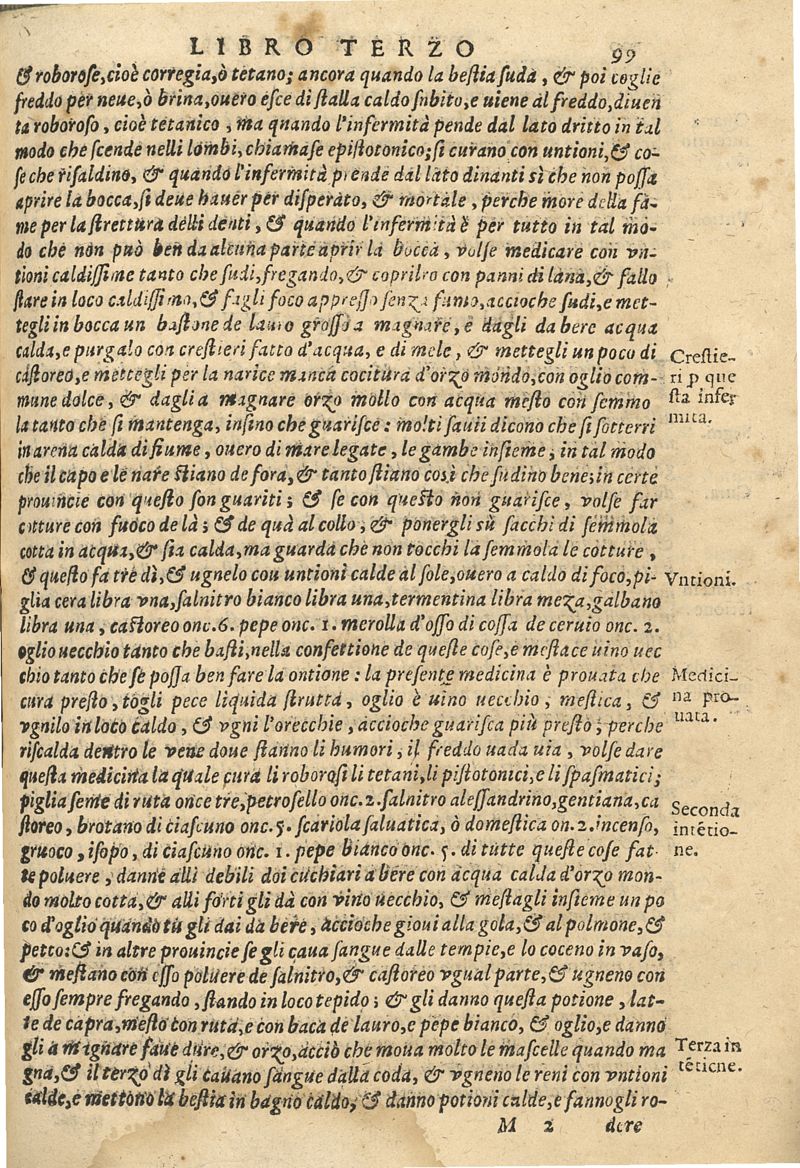 LIBRO TERZO 99
& roborose, cioè corregia, ò tetano; ancora quando la bestia suda, & poi coglie
freddo per neue, ò brina, ouero esce di stalla caldo subito, e uiene al freddo, diuen
ta roboroso, cioè tetanico, ma quando l'infermità pende dal lato dritto in tal
modo che scende nelli lombi, chiamase epistotonico; si curano con untioni, & co-
se che risaldino, & quando l'infermità prende dal lato dinanti sì che non possa
aprire la bocca, si deue hauer per disperato, & mortale, perche more della fa-
me per la strettura delli denti, & quando l'infermità è per tutto in tal mo-
do che non può ben da alcuna parte aprir la bocca, volse medicare con vn-
tioni caldissime tanto che sudi, fregando, & coprilro con panni di lana, & fallo
stare in loco caldissimo, & fagli foco appresso senza fumo, accioche sudi, e met-
tegli in bocca un bastone de lauro grosso a magnare, e dagli da bere acqua
calda, e purgalo con crestieri fatto d'acqua, e di mele, & mettegli un poco di
castoreo, e mettegli per la narice manca cocitura d'orzo mondo, con oglio com-
mune dolce, & dagli a magnare orzo mollo con acqua mesto con semmo
la tanto che si mantenga, insino che guarisce: molti sauii dicono che si sotterri
in arena calda di fiume, ouero di mare legate, le gambe insieme, in tal modo
che il capo e le nare stiano de fora, & tanto stiano così che sudino bene; in certe
prouincie con questo son guariti; & se con questo non guarisce, volse far
cotture con fuoco de là; & de quà al collo, & ponergli sù sacchi di semmola
cotta in acqua, & sia calda, ma guarda che non tocchi la semmola le cotture,
& questo fa tre dì, & ugnelo cou untioni calde al sole, ouero a caldo di foco, pi-
glia cera libra vna, salnitro bianco libra una, termentina libra meza, galbano
libra una, castoreo onc. 6. pepe onc. 1. merolla d'osso di cossa de ceruio onc. 2.
oglio uecchio tanto che basti, nella confettione de queste cose, e mestace uino uec
chio tanto che se possa ben fare la ontione: la presente medicina è prouata che
cura presto, togli pece liquida strutta, oglio è uino uecchio, mestica, &
vgnilo in loco caldo, & vgni l'orecchie, accioche guarisca più presto; perche
riscalda dentro le vene doue stanno li humori, il freddo uada uia, volse dare
questa medicina la quale cura li roborosi li tetani, li pistotonici, e li spasmatici;
piglia seme di ruta once tre, petrosello onc. 2. salnitro alessandrino, gentiana, ca
storeo, brotano di ciascuno onc. 5. scariola saluatica, ò domestica on. 2. incenso,
gruoco, isopo, di ciascuno onc. 1. pepe bianco onc. 5. di tutte queste cose fat-
te poluere, danne alli debili doi cuchiari a bere con acqua calda d'orzo mon-
do molto cotta, & alli forti gli dà con vino uecchio, & mestagli insieme un po
co d'oglio quando tù gli dai da bere, accioche gioui alla gola, & al polmone, &
petto: & in altre prouincie se gli caua sangue dalle tempie, e lo coceno in vaso,
& mestano con esso poluere de salnitro, & castoreo vgual parte, & ugneno con
esso sempre fregando, stando in loco tepido; & gli danno questa potione, lat-
te de capra, mesto con ruta, e con baca de lauro, e pepe bianco, & oglio, e danno
gli à mignare faue dure, & orzo, acciò che moua molto le mascelle quando ma
gna, & il terzo dì gli cauano sangue dalla coda, & vgneno le reni con vntioni
calde, e mettono la bestia in bagno caldo, & danno potioni calde, e fannogli ro-
M 2 dere
Crestie-
ri p que
sta infer
mita.
Vntioni.
Medici-
na pro-
uata.
Seconda
intẽtio-
ne.
Terza in
tẽtione.